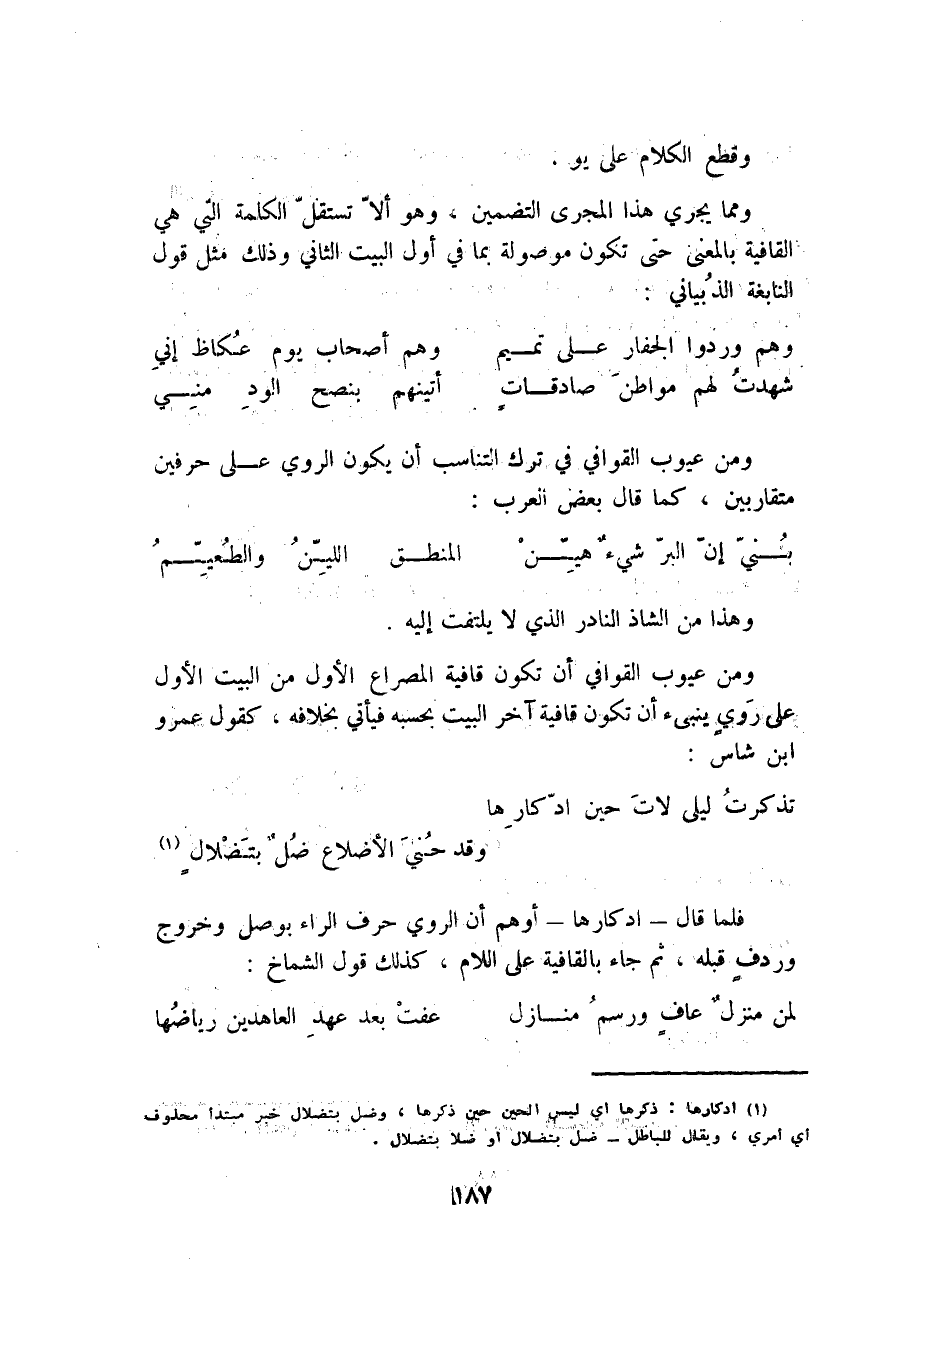 وقطع الكلام على يو .
ومما يجري هذا المجرى التضمين ، وهو ألاّ تستقلّ الكلمة التي هي
القافية بالمعنى حتى تكون موصولة بما في أول البيت الثاني وذلك مثل قول
النابغة الذُبياني :
وهم وردوا الجفار عــلى تمــيم وهم أصحاب يوم عُكاظ إنيِ
شهدتُ لهم مواطنَ صادقــاتٍ أتينهم بنصح الودِ منِــي
ومن عيوب القوافي في ترك التناسب أن يكون الروي عــلى حرفين
متقاربين ، كما قال بعض العرب :
بُــنيّ إنّ البرّ شيءٌ هيِّــنْ المنطــق الليِّنُ والطُعيِّــمُ
وهذا من الشاذ النادر الذي لا يلتفت إليه .
ومن عيوب القوافي أن تكون قافية المصراع الأول من البيت الأول
على رَويٍ ينبىء أن تكون قافية آخر البيت بحسبه فيأتي بخلافه ، كقول عمرو
ابن شاس :
تذكرتُ ليلى لاتَ حين ادّكارِها
وقد حُنيَ الأضلاع ضُلٌ بتَضْلالٍ (١)
فلما قال – ادكارها – أوهم أن الروي حرف الراء بوصل وخروج
وردفٍ قبله ، ثم جاء بالقافية على اللام ، كذلك قول الشماخ :
لمن منزلٌ عافٍ ورسمُ منــازل عفتْ بعد عهدِ العاهدين رياضُها
(١) ادكارها : ذكرها اي ليس الحين حين ذكرها ، وضل بتضلال خبر مبتدأ محذوف
أي أمري ، ويقال للباطل – ضل بتضلال أو ضلا بتضلال .
١٨٧